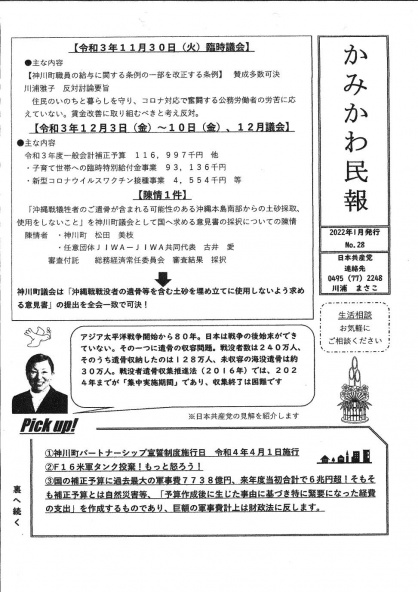 かみかわ民報
2022年1月発行
No.28
日本共産党
連絡先
0495（77）2248
川浦　まさこ
生活相談
お気軽に
ご相談ください
【令和３年１１月３０日（火）臨時議会】
●主な内容
【神川町職員の給与に関する条例の一部を改正する条例】　賛成多数可決
川浦雅子　反対討論要旨
住民のいのちと暮らしを守り、コロナ対応で奮闘する公務労働者の労苦に応
えていない。賃金改善に取り組むべきと考え反対。
【令和３年１２月３日（金）～１０日（金）、１２月議会】
●主な内容
令和３年度一般会計補正予算　１１６，９９７千円　他
・子育て世帯への臨時特別給付金事業　９３，１３６千円
・新型コロナウイルスワクチン接種事業　４，５５４千円　等
【陳情１件】
「沖縄戦犠牲者のご遺骨が含まれる可能性のある沖縄本島南部からの土砂採取、
使用をしないこと」を神川町議会として国へ求める意見書の採択についての陳情
陳情者　・神川町　松田　美枝
・任意団体ＪＩＷＡ－ＪＩＷＡ共同代表　古井　愛
審査付託　　総務経済常任委員会　審査結果　採択
神川町議会は「沖縄戦戦没者の遺骨等を含む土砂を埋め立てに使用しないよう求め
る意見書」の提出を全会一致で可決！
アジア太平洋戦争開始から８０年。日本は戦争の後始末ができ
ていない。その一つに遺骨の収容問題。戦没者数は２４０万人、
そのうち遺骨収納したのは１２８万人、未収容の海没遺骨は約
３０万人。戦没者遺骨収集推進法（２０１６年）では、２０２
４年までが「集中実施期間」であり、収集終了は困難です
※日本共産党の見解を紹介します
Pick up!
①神川町パートナーシップ宣誓制度施行日　令和４年４月１日施行
②Ｆ１６米軍タンク投棄！もっと怒ろう！
③国の補正予算に過去最大の軍事費７７３８億円、来年度当初合計で６兆円超！そもそ
も補正予算とは自然災害等、「予算作成後に生じた事由に基づき特に緊要になった経費
の支出」を作成するものであり、巨額の軍事費計上は財政法に反します。
裏へ続く